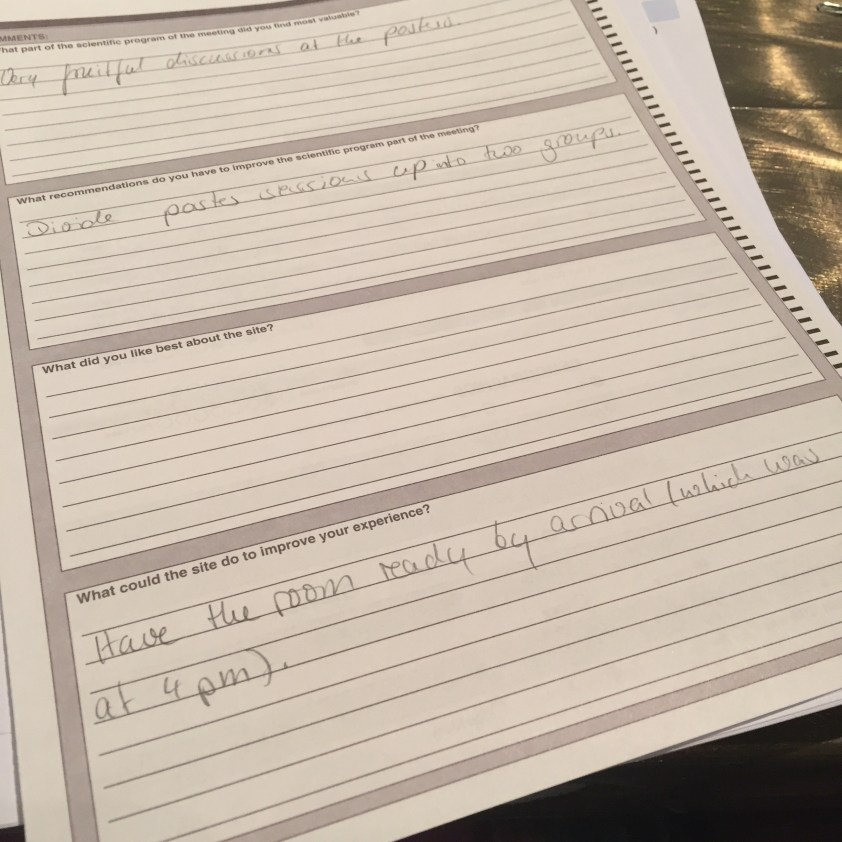 MMENTS:
hat part of the scientific program of the meeting did you find most valuable?
Very fruitful discussions at the posters.
What recommendations do you have to improve the scientific program part of the meeting?
Divide poster sessions up into two groups.
What did you like best about the site?
What could the site do to improve your experience?
Have the room ready by arrival (which was
at 4 pm).
)